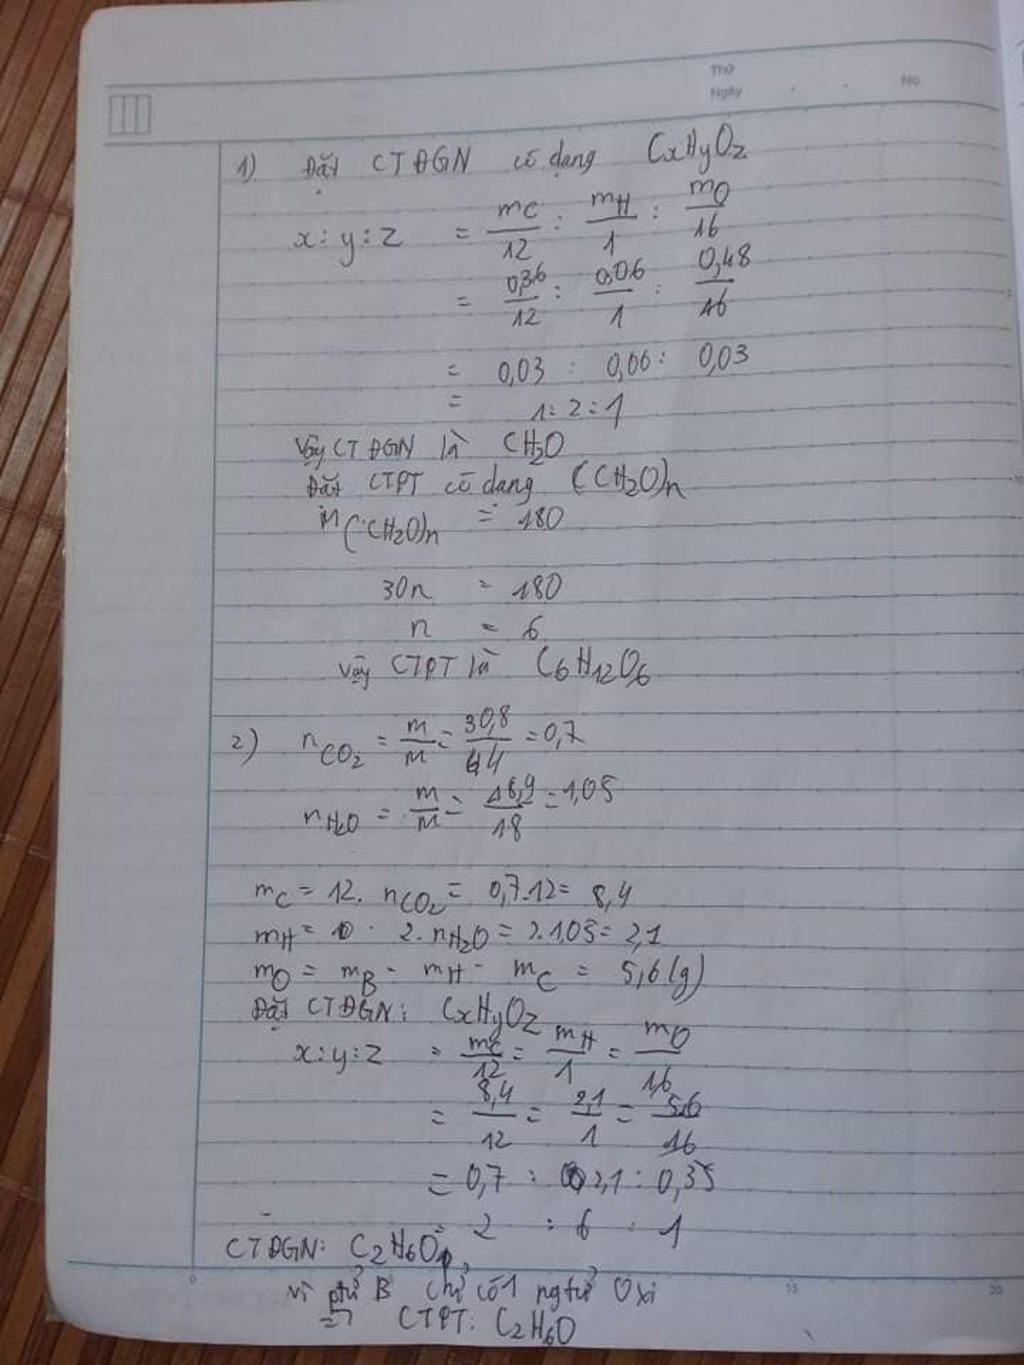 Thứ
Ngày No.
1) Đặt CTĐGN có dạng CxHyOz
x : y : z = mC/12 : mH/1 : mO/16
= 0,36/12 : 0,06/1 : 0,48/16
= 0,03 : 0,06 : 0,03
= 1 : 2 : 1
Vậy CTĐGN là CH2O
Đặt CTPT có dạng (CH2O)n
M(CH2O)n = 180
30n = 180
n = 6
Vậy CTPT là C6H12O6
2) nCO2 = m/M = 30,8/44 = 0,7
nH2O = m/M = 18,9/18 = 1,05
mC = 12. nCO2 = 0,7.12 = 8,4
mH = 2. nH2O = 2.1,05 = 2,1
mO = mB - mH - mC = 5,6 (g)
Đặt CTĐGN: CxHyOz
x : y : z = mC/12 = mH/1 = mO/16
= 8,4/12 = 2,1/1 = 5,6/16
= 0,7 : 2,1 : 0,35
= 2 : 6 : 1
CTĐGN: C2H6O
vì ptử B chỉ có 1 ngtử Oxi
=> CTPT: C2H6O
0 15 20